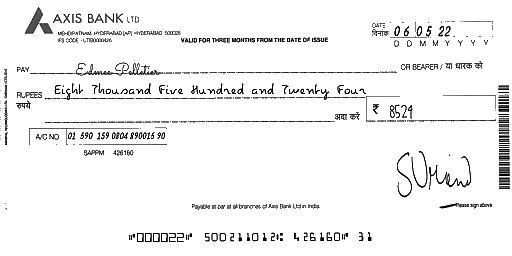 AXIS BANK LTD
MEHDIPATNAM, HYDERABAD [AP] HYDERABAD 500028
IFS CODE - UTIB0000426
VALID FOR THREE MONTHS FROM THE DATE OF ISSUE
DATE
दिनांक 06 05 22
D D M M Y Y Y Y
PAY Edmee Pelletier OR BEARER / या धारक को
RUPEES Eight Thousand Five Hundred and Twenty Four
रुपये अदा करें ₹ 8524
A/C NO 01 590 159 0804 890015 90
SAPPM 426160
Payable at par at all branches of Axis Bank Ltd in India.
Please sign above
"000022" 500211012: 426160" 31